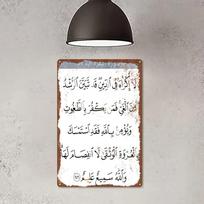 لَآ إِكْرَاهَ فِي ٱلدِّينِ قَد تَّبَيَّنَ ٱلرُّشْدُ
مِنَ ٱلْغَيِّ فَمَن يَكْفُرْ بِٱلطَّٰغُوتِ
وَيُؤْمِنۢ بِٱللَّهِ فَقَدِ ٱسْتَمْسَكَ
بِٱلْعُرْوَةِ ٱلْوُثْقَىٰ لَا ٱنفِصَامَ لَهَا
وَٱللَّهُ سَمِيعٌ عَلِيمٌ ٢٥٦